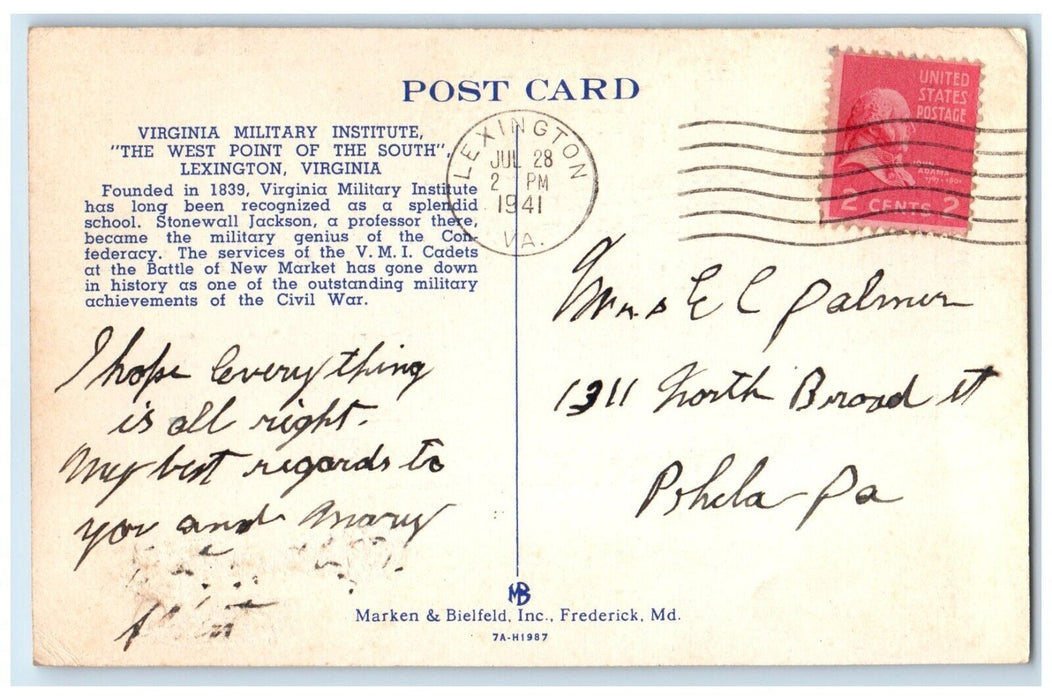 POST CARD
VIRGINIA MILITARY INSTITUTE,
"THE WEST POINT OF THE SOUTH",
LEXINGTON, VIRGINIA
Founded in 1839, Virginia Military Institute
has long been recognized as a splendid
school. Stonewall Jackson, a professor there,
became the military genius of the Con-
federacy. The services of the V. M. I. Cadets
at the Battle of New Market has gone down
in history as one of the outstanding military
achievements of the Civil War.
I hope everything
is all right.
My best regards to
you and Mary
LEXINGTON
JUL 28
2 PM
1941
VA.
UNITED
STATES
POSTAGE
JOHN
ADAMS
2 CENTS 2
Mrs E C Palmer
1311 North Broad St
Phila Pa
MB
Marken & Bielfeld, Inc., Frederick, Md.
7A-H1987